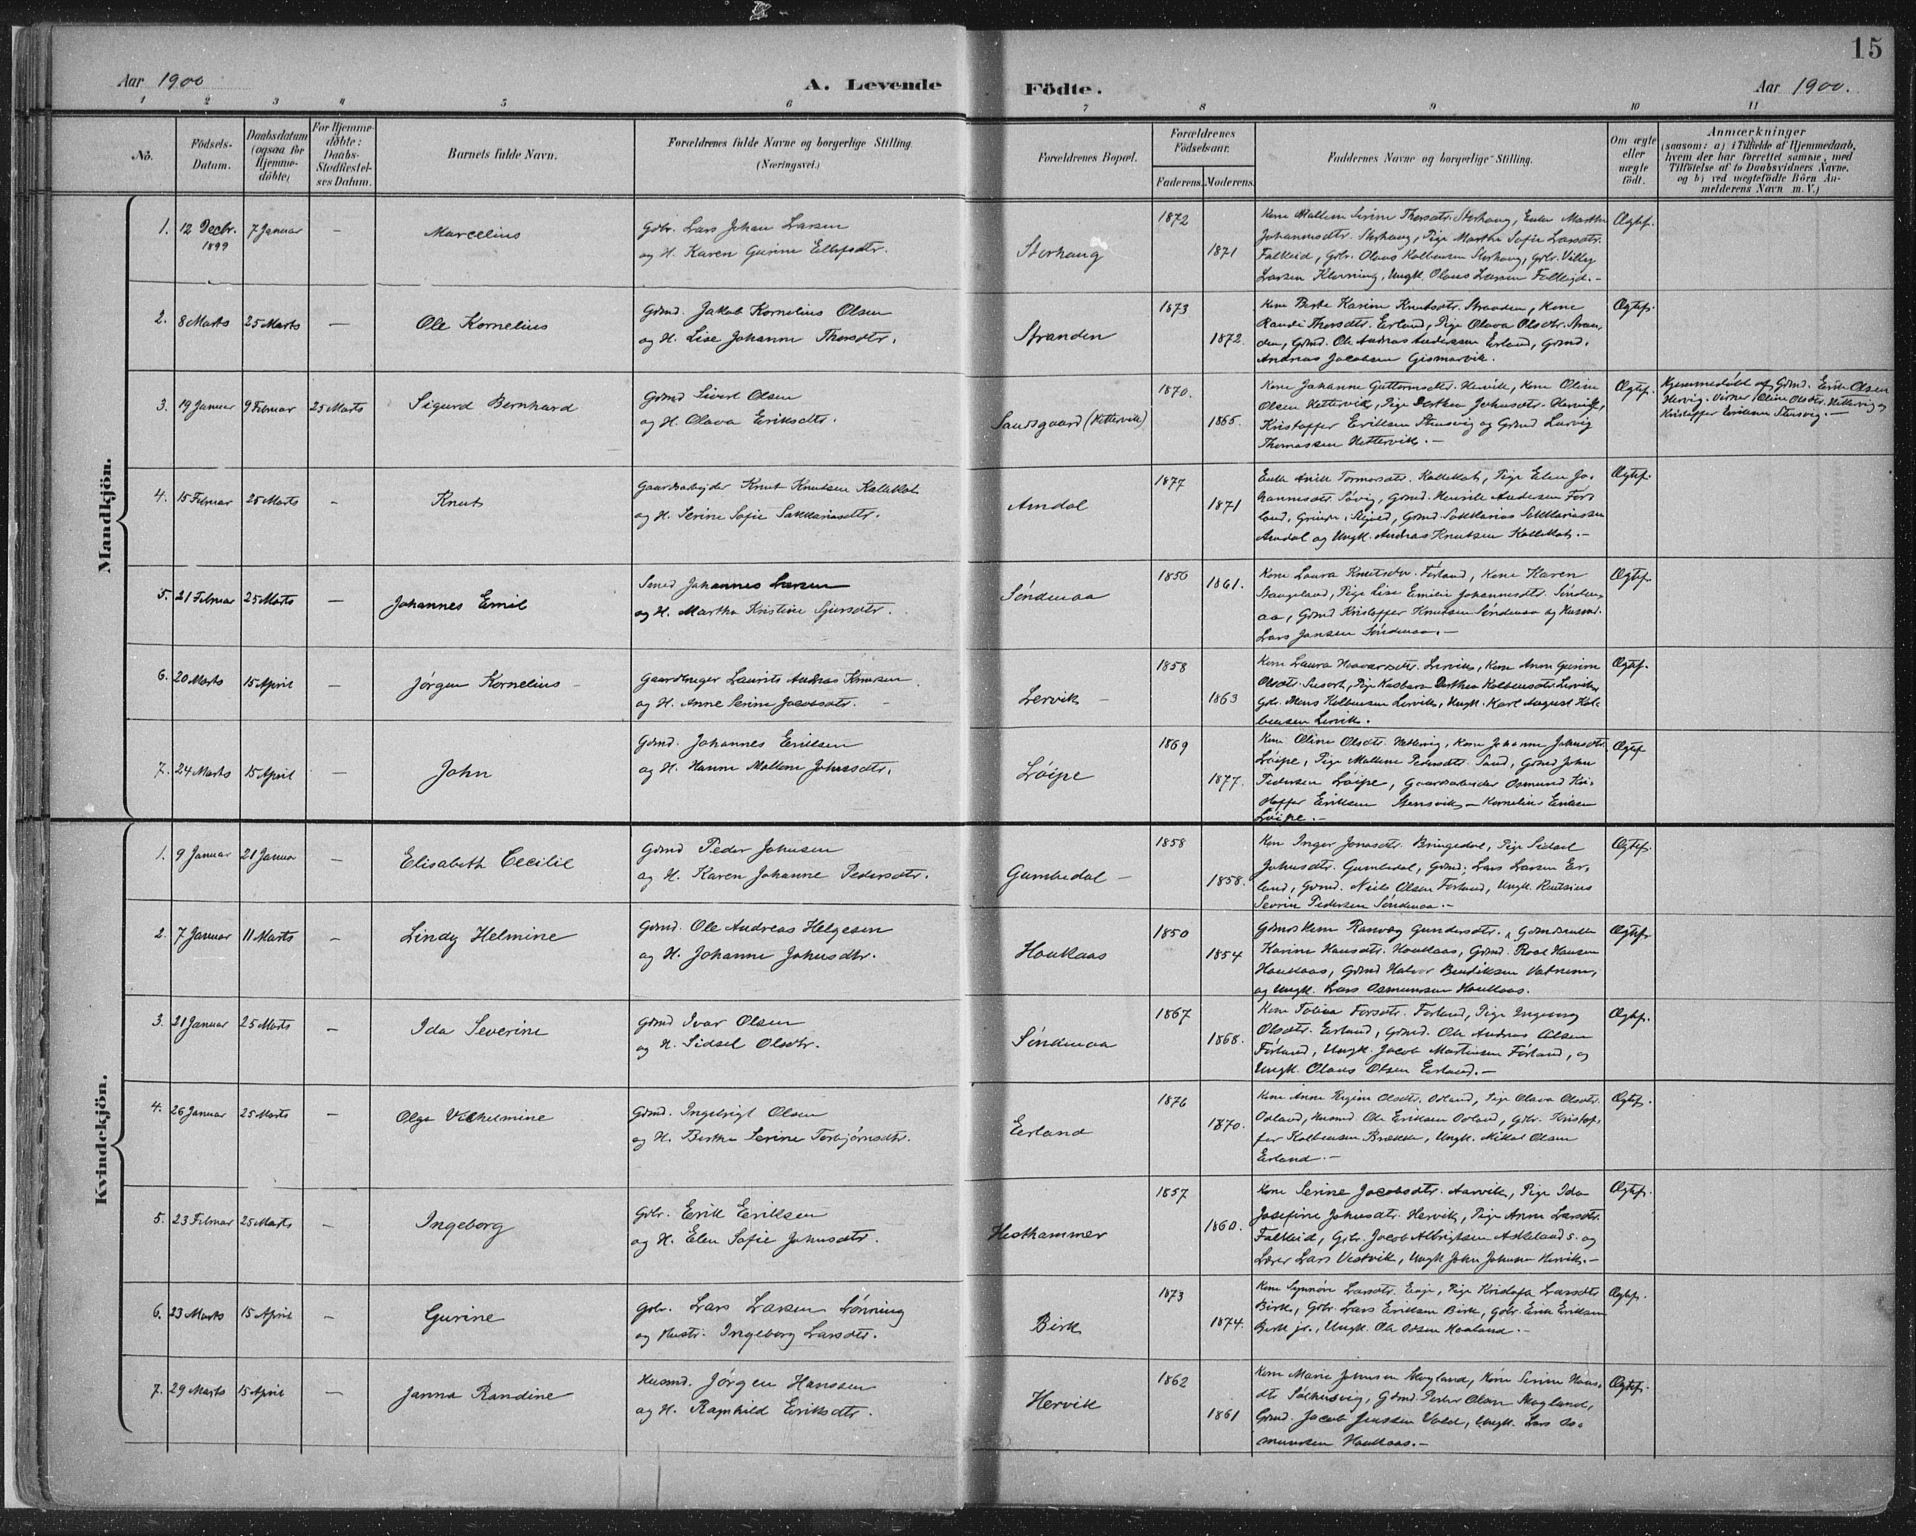 15
Aar 1900
A. Levende
Födte.
Aar 1900.
1 2 3 4 5 6 7 8 9 10 11
No.
Födsels-
Datum.
Daabsdatum
(ogsaa for
Hjemme-
döbte)
For Hjemme-
döbte:
Daabs-
Stadfæstel-
ses Datum.
Barnets fulde Navn.
Forældrenes fulde Navne og borgerlige Stilling.
(Næringsvei.)
Forældrenes Bopæl.
Forældrenes
Födselsaar.
Faderens. Moderens.
Faddernes Navne og borgerlige Stilling.
Om ægte
eller
uægte
födt.
Anmærkninger
(saasom: a) i Tilfælde af Hjemmedaab,
hvem der har forrettet samme, med
Tilföielse af to Daabsvidners Navne,
og b) ved uægtefödte Börn An-
melderens Navn m. V.)
Mandkjön.
1. 12 Decbr. 1899
7 Januar
—
Marcelius
Gbr. Lars Johan Larsen
og H. Karen Gurine
Storhaug
1872
1871
Kone Mallene Serine Thorsdtr. Storhaug, Enke Martha
Johannesdtr. Storhaug, Pige Martha Sofie Larsdtr.
Falkeid, Gbr. Olaus Kolbensen Storhaug, Gbr. Villy
Larsen Klovning, Ungk. Olaus Larsen Falkeid.—
Ægtef.
2. 8 Marts
25 Marts
—
Ole Kornelius
Grmd. Jakob Kornelius Olsen
og H. Lise Johanne Thorsdtr.
Stranden
1873
1872.
Kone Berte Karine Knutsdtr. Stranden, Kone
Randi Thorsdtr. Erland, Pige Olava Olsdtr. Stran-
den, Grmd. Ole Andreas Anderssen Erland, Grmd.
Andreas Jacobsen Gismarvik.
Ægtef.
3. 19 Januar
9 Februar
25 Marts
Sigurd Bernhard
Grmd Sivert Olsen
og H. Olava Eriksdtr.
Sandsgaard (Hettervik)
1870.
1865.
Kone Johanne Guttormsdtr. Hervik, Kone Oline
Olsen Hettervik, Pige Dorthea Johnsdtr. Hervik,
Kristoffer Eriksen Stensvig og Grmd Lurvig
Thomassen Hettervik.—
Ægtef.
Hjemmedøbt af Grmd. Erik Olsen
Hervig. Vidner: Oline Olsdtr. Hettervig og
Kristoffer Eriksen Stensvig.—
4. 15 Februar
25 Marts
—
Knut
Gaardsarbejder Knut Knutsen Kallekot
og H. Serine Sofie Sakkariasdtr.
Amdal
1877
1871
Enke Anik Tormodsdtr. Kallekot, Pige Elen Jo-
hannesdtr. Søvig, Grmd. Henrik Andersen For-
land, Grmd Sakkarias Sakkariassen
Amdal og Ungk. Andreas Knutsen Kallekot.—
Ægtef.
5. 21 Februar
25 Marts
—
Johannes Emil
Smed Johannes Larsen
og H. Martha Kristine Sjursdtr.
Søndenaa
1850
1861.
Kone Laura Knutsdtr. Førland, Kone Karen
Stangeland, Pige Lise Emilie Johannesdtr. Sønden-
aa, Grmd Kristoffer Knutsen Søndenaa og Husmd.
Lars Jansen Søndenaa.—
Ægtef.
6. 20 Marts
15 April
—
Jørgen Kornelius
Gaardbruger Laurits Andreas Knutsen
og H. Anne Serine Jacobsdtr. —
Lervik —
1858
1863
Kone Laura Haavarsdtr. Lervik, Kone Anne Gurine
Olsdtr. Susort, Pige Kasbara Dorthea Kolbensdtr. Lervik,
Gbr. Mons Kolbensen Lervik, Ungk. Karl August Kol-
bensen Lervik.
Ægtef.
7. 24 Marts
15 April
—
John
Grmd. Johannes Eriksen
og H. Hanne Mallene Johnsdtr.
Løipe
1869
1877.
Kone Oline Olsdtr. Hettervig, Kone Johanne Johnsdtr.
Løipe, Pige Mallene Pedersdtr. Sand, Grmd John
Pedersen Løipe, Gaardsarbeider Osmund Kri-
stoffer Eriksen Stensvik — Kornelius Eriksen
Løipe.—
Ægtef
Kvindekjön.
1. 9 Januar
21 Januar
—
Elisabeth Cecilie
Grmd Peder Johnsen
og H. Karen Johanne Pedersdtr.
Gumbedal —
1858
1858.
Kone Inger Jonasdtr. Bringedal, Pige Sidsel
Johnsdtr. Gumbedal, Grmd. Lars Larsen Er-
land, Grmd. Niels Olsen Førland, Ungk.
Severin Pedersen Søndenaa.—
Ægtef.
2. 7 Januar
11 Marts
—
Lindy Helmine
Grmd. Ole Andreas Helgesen
og H. Johanne Johnsdtr.
Houkaas
1850
1854
Grmdskone Ranvæg Gundersdtr., Grmdsenke
Karine Hansdtr. Houkaas, Grmd. Roal Hansen
Houkaas, Grmd Halvor Bendiksen Vatnem,
og Ungk. Lars Osmundsen Houkaas.
Ægtef
3. 21 Januar
25 Marts
—
Ida Severine
Grmd Ivar Olsen
og H. Sidsel Olsdtr.
Søndenaa
1867
1868.
Kone Tobia Forsdtr. Førland, Pige Ingeborg
Olsdtr. Erland, Grmd. Ole Andreas Olsen
Førland, Ungk. Jacob Martinsen Førland, og
Ungk. Olaus Olsen Erland.—
Ægtef.
4. 26 Januar
25 Marts
—
Olga Vilhelmine
Grmd. Ingebrigt Olsen
og H. Berthe Serine Torbjørnsdtr.
Erland
1876
1870.
Kone Anne Regine Olsdtr. Odland, Pige Olava Olsdtr.
Odland, Husmd Ole Eriksen Odland, Gbr. Kristof-
fer Kolbensen Brække, Ungk. Nikol Olsen
Erland.—
Ægtef.
5. 23 Februar
25 Marts
—
Ingeborg
Gbr. Erik Eriksen
og H. Elen Sofie Johnsdtr.
Hesthammer
1857
1860.
Kone Serine Jacobsdtr. Aarvik, Pige Ida
Josefine Johnsdtr. Hervik, Pige Anne Larsdtr.
Falkeid, Gbr. Jacob Albrigtsen Askeland s. og
Lærer Lars Vestvik, Ungk John Johnsen Hervik.—
Ægtef.
6. 23 Marts
15 April
—
Gurine
Gbr. Lars Larsen Lønning
og Hustr. Ingeborg Larsdtr.
Birk
1873
1874.
Kone Synnøve Larsdtr. Eeje, Pige Kristofa Larsdtr
Birk, Gbr Lars Eriksen Birk, Gbr. Erik Eriksen
Birk jr., Ungk. Ole Odsen Haaland.—
Ægtef.
7. 29 Marts
15 April
—
Janna Randine
Husmd. Jørgen Hanssen
og H. Ragnhild Eriksdtr.
Hervik
1862
1861
Kone Marie Johnsen Skogland, Kone Serine Hans-
dtr Solhusvig, Grmd. Peder Olsen Skogland,
Grmd. Jacob Jenssen Vold, Ungk. Lars Os-
mundsen Houkaas.—
Ægtef.